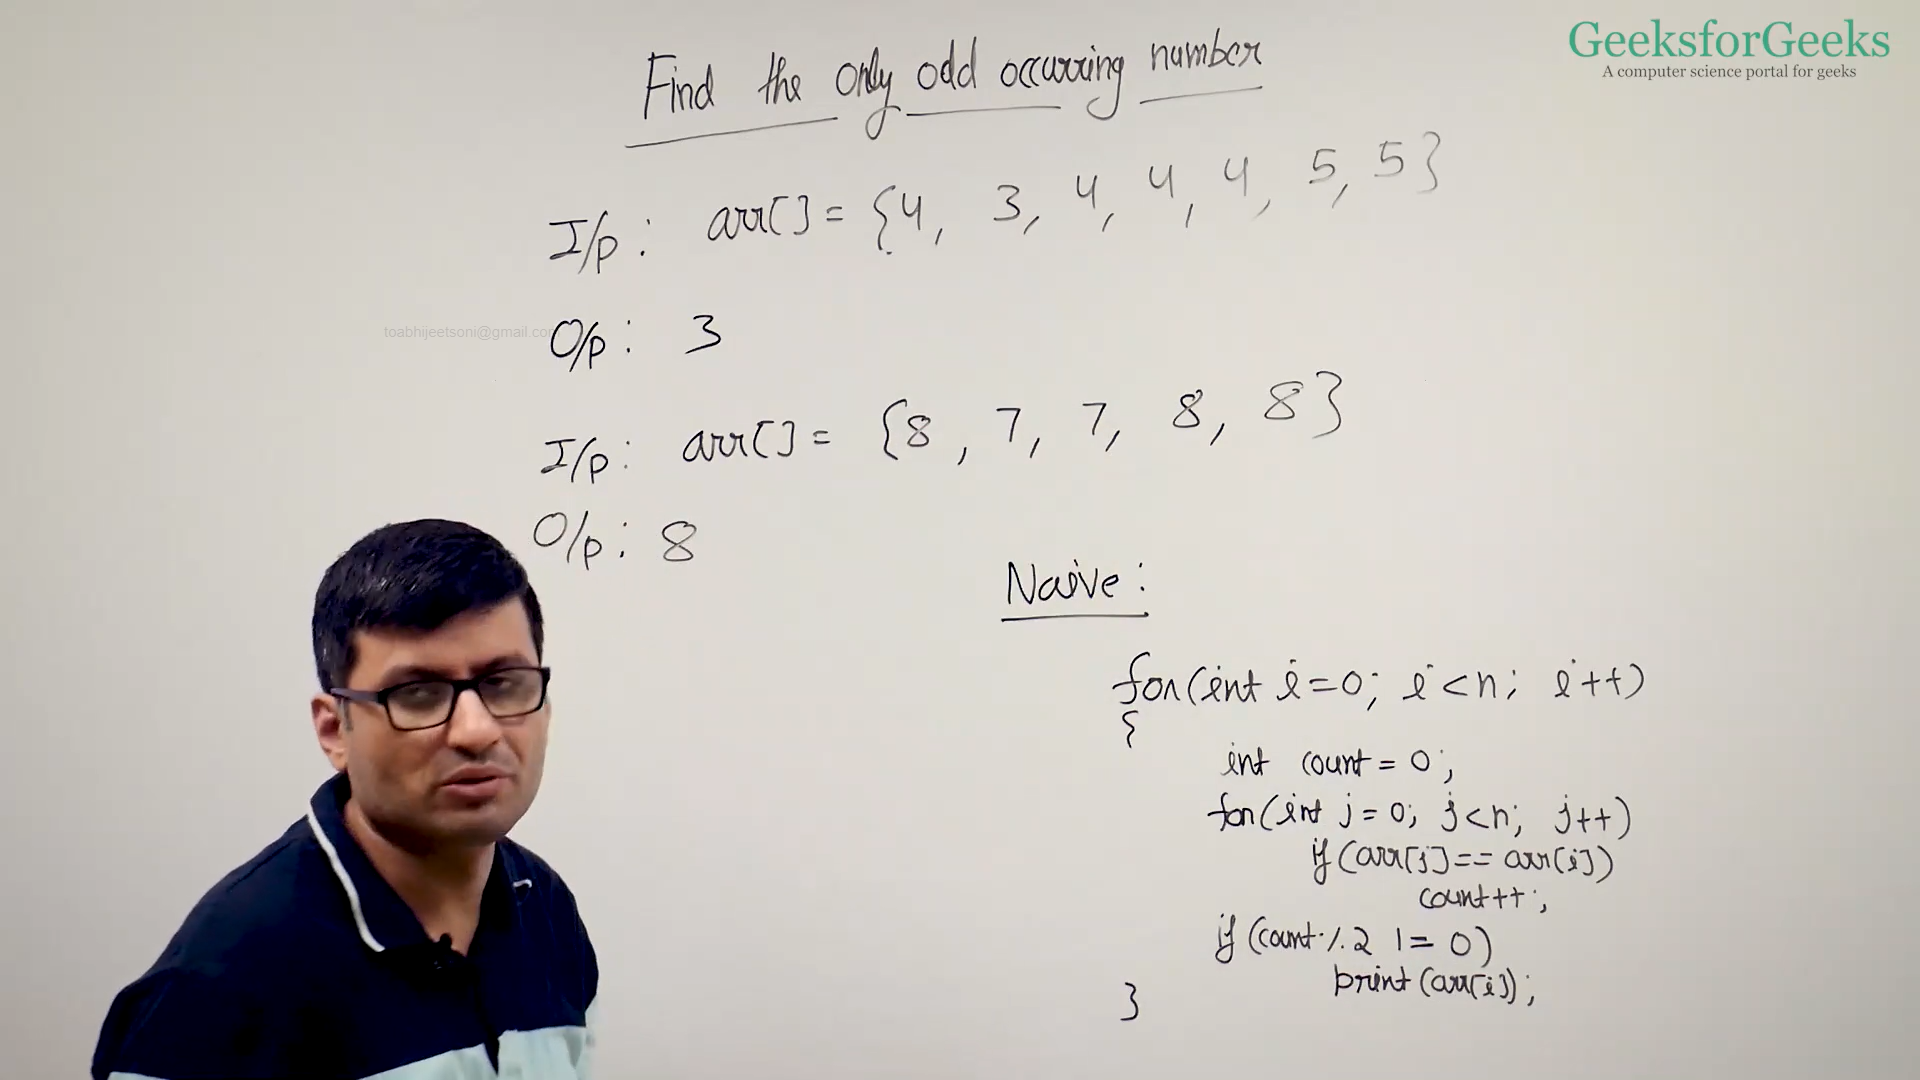 GeeksforGeeks
A computer science portal for geeks
Find the only odd occurring number
I/p: arr[] = {4, 3, 4, 4, 4, 5, 5}
toabhijeetsoni@gmail.co
O/p: 3
I/p: arr[] = {8, 7, 7, 8, 8}
O/p: 8
Naive:
for(int i=0; i<n; i++)
{
int count = 0;
for(int j=0; j<n; j++)
if(arr[j]==arr[i])
count++;
if(count%2 != 0)
print(arr[i]);
}